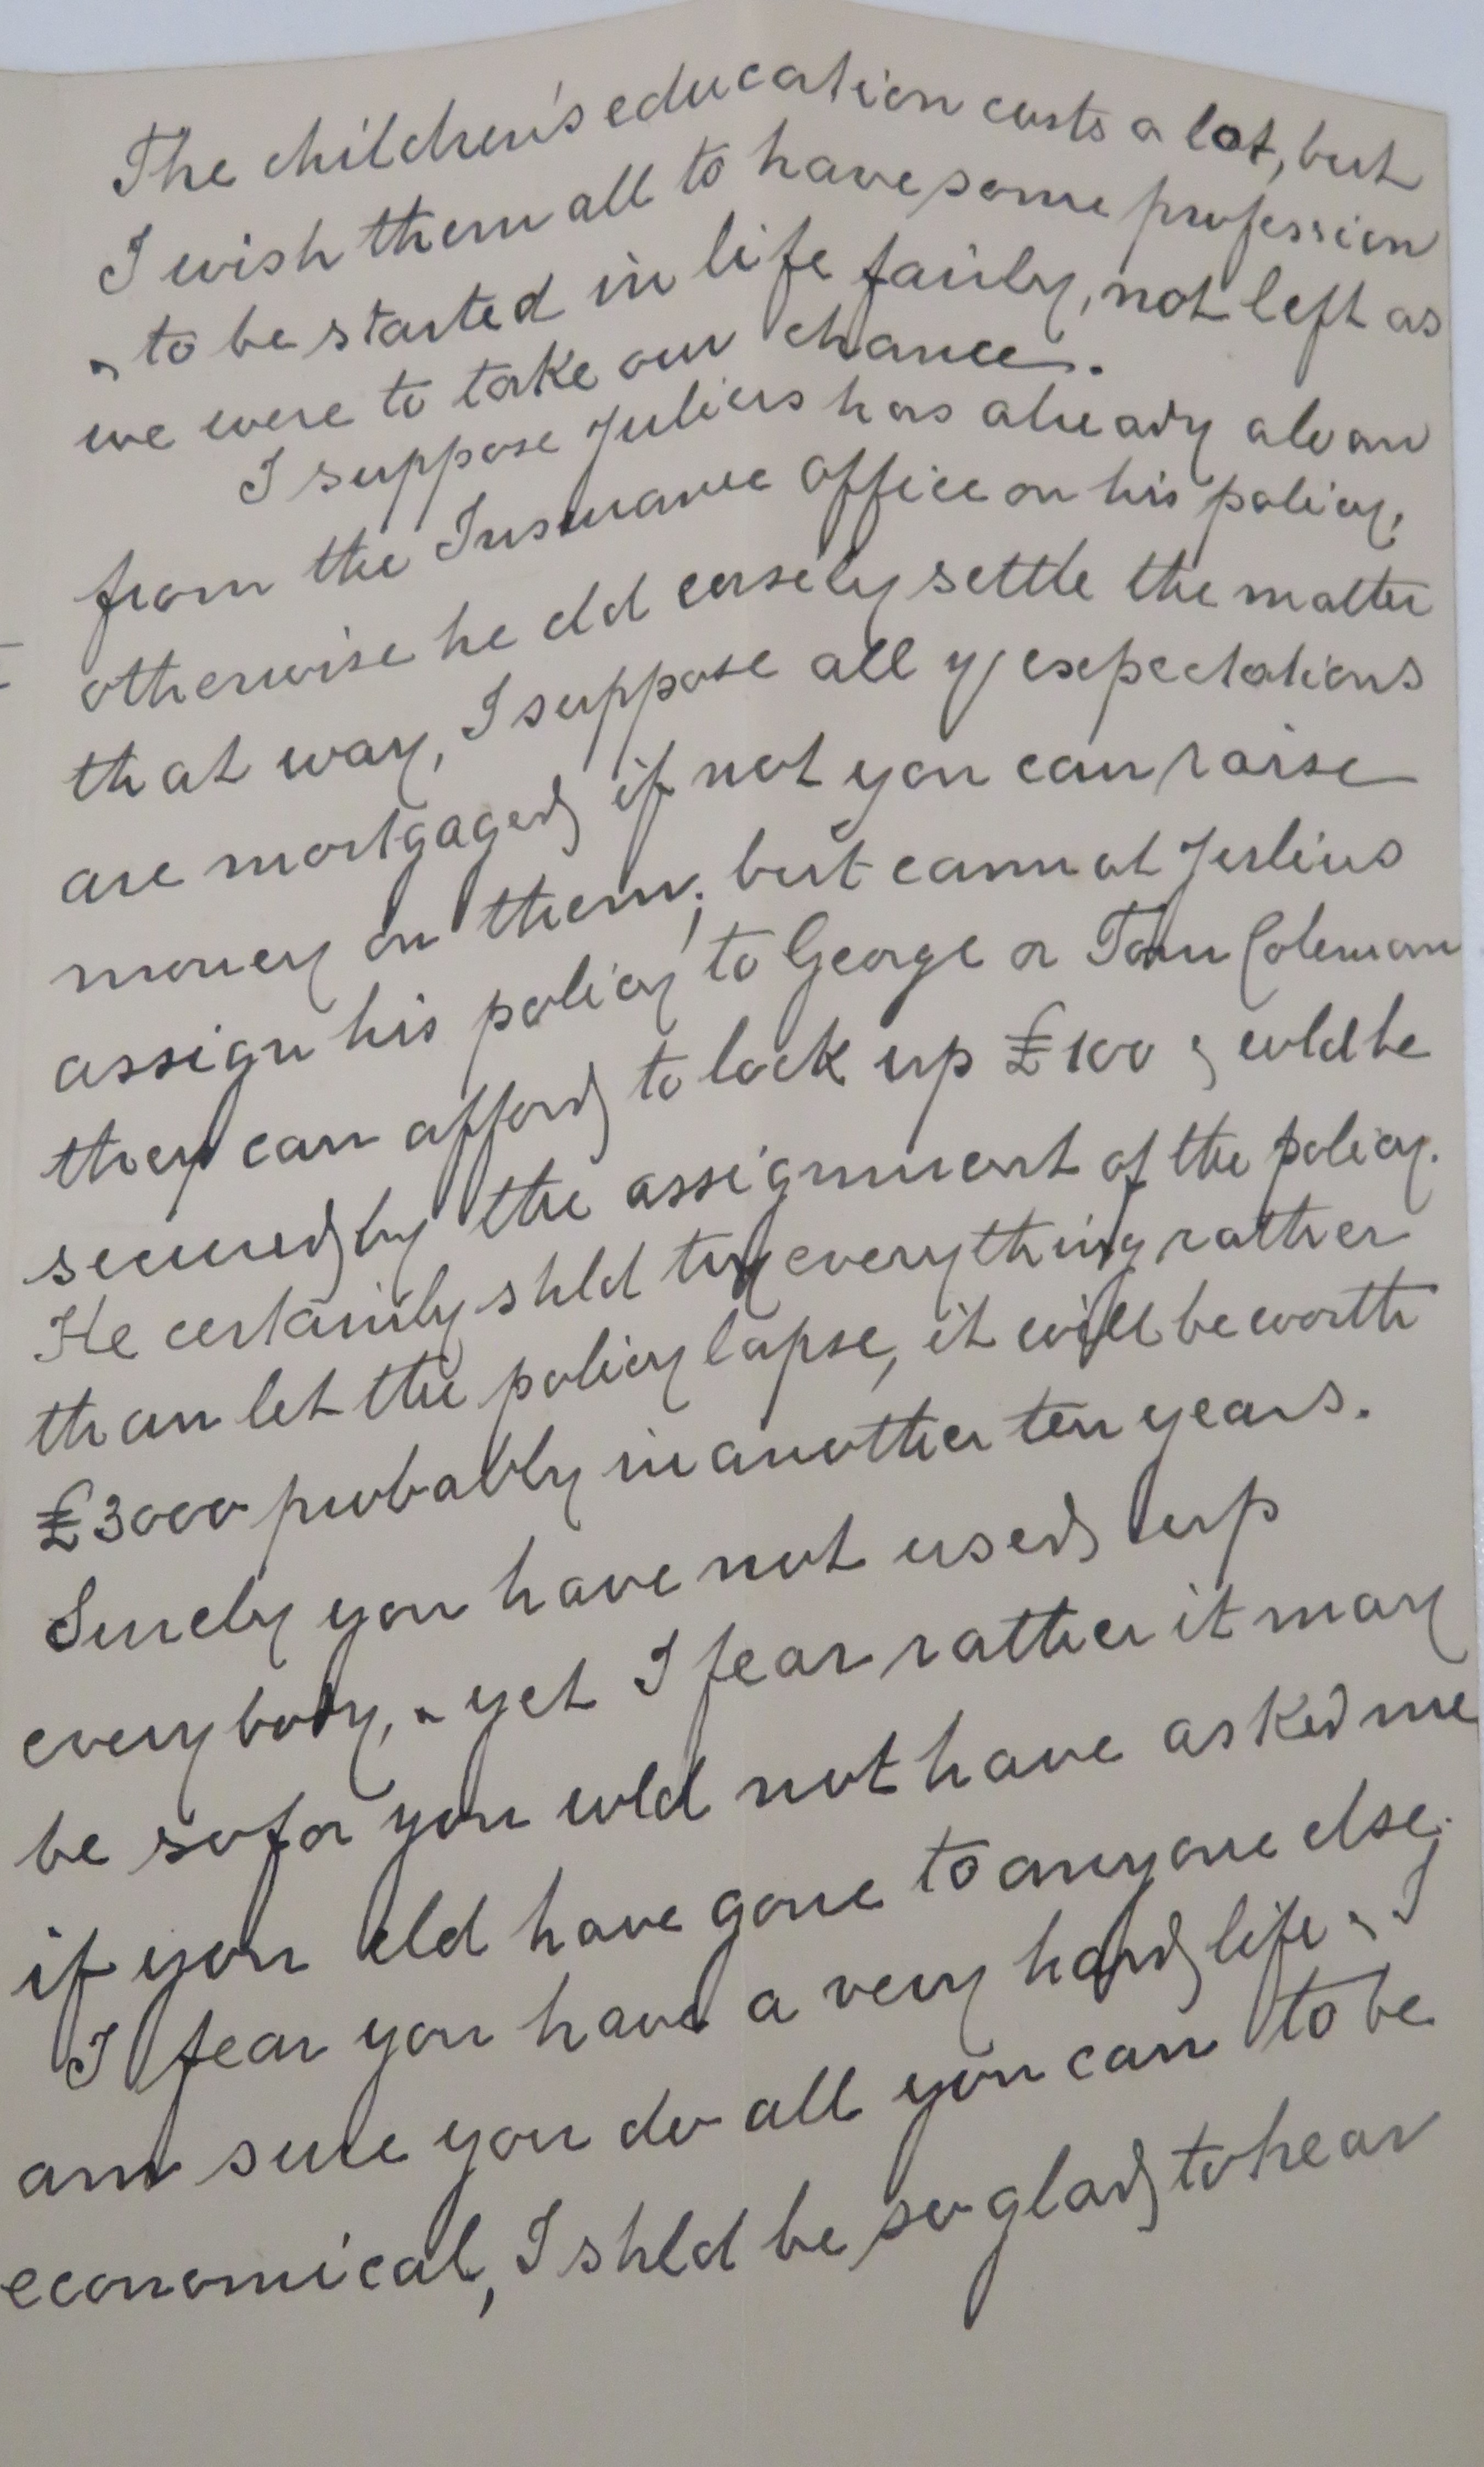 The children's education costs a lot, but
I wish them all to have some profession
& to be started in life fairly, not left as
we were to take our chance.
I suppose Julius has already a loan
from the Insurance Office on his policy,
otherwise he cld easely settle the matter
that way, I suppose all yr expectations
are mortgaged, if not you can raise
money on them; but cannot Julius
assign his policy to George or Tom Coleman
they can afford to lock up £100 & wld be
secured by the assignment of the policy.
He certainly shld try everything rather
than let the policy lapse, it will be worth
£3000 probably in another ten years.
Surely you have not used up
everybody, & yet I fear rather it may
be so for you wld not have asked me
if you cld have gone to anyone else;
I fear you have a very hard life & I
am sure you do all you can to be
economical, I shld be so glad to hear